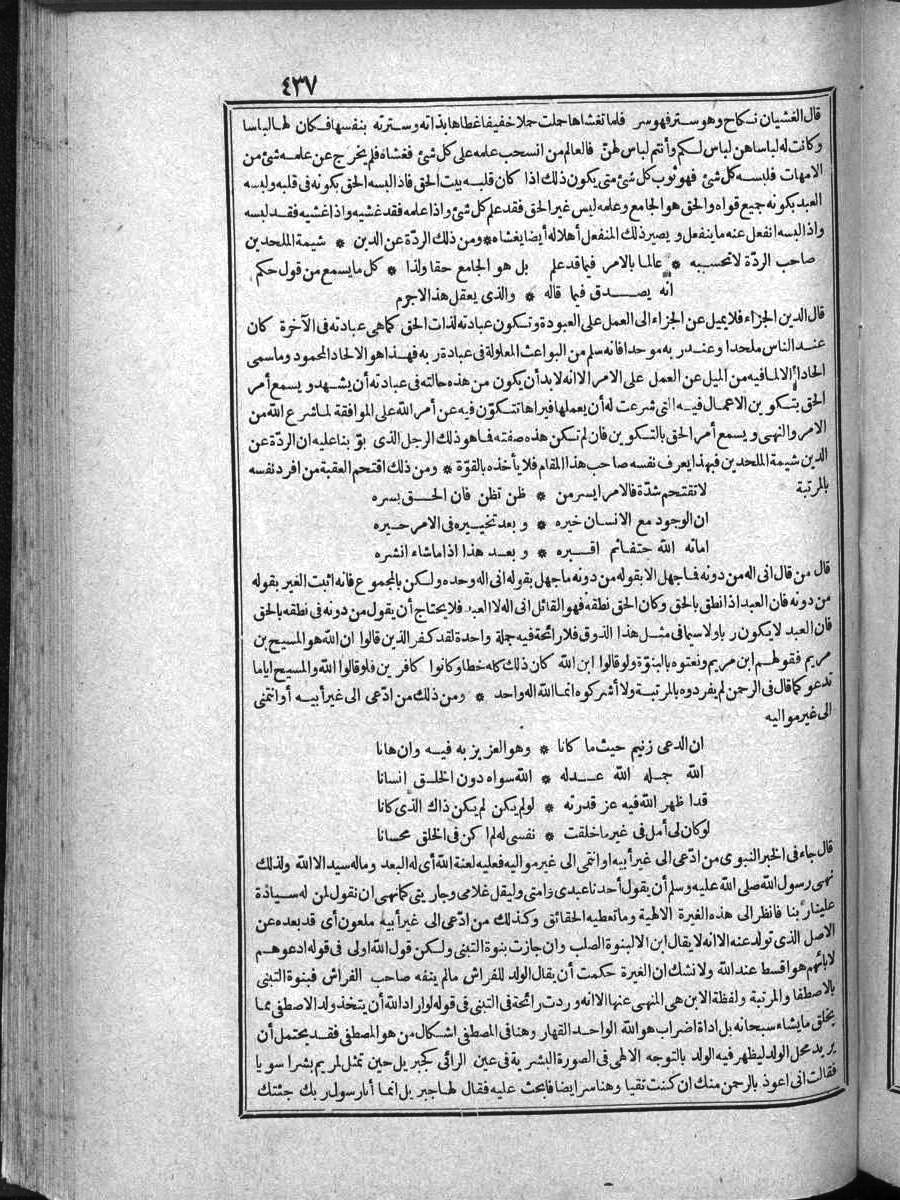 ٤٣٧
قال الغشيان نكاح وهو ستر فهو سر فلما تغشاها حملت حملا خفيفا غطاها بذاته وسترته بنفسها فكان لها لباسا
وكانت له لباسا هن لباس لكم وأنتم لباس لهن فالعالم من انسحب علمه على كل شئ فغشاه فلم يخرج عن علمه شئ من
الامهات فلبسه كل شئ فهو ثوب كل شئ متى يكون ذلك اذا كان قلبه بيت الحق فاذا لبسه الحق بكونه فى قلبه ولبسه
العبد بكونه جميع قواه والحق هو الجامع وعلمه ليس غير الحق فقد علم كل شئ واذا علمه فقد غشيه واذا غشيه فقد لبسه
واذا لبسه انفعل عنه ما ينفعل ويصير ذلك المنفعل أهلا له أيضا يغشاه * ومن ذلك الردّة عن الدين * شيمة الملحدين
صاحب الردّة لا تحسبه * عالما بالامر فيما قد علم بل هو الجامع حقا ولذا * كل ما يسمع من قول حكم
انه يصدق فيما قاله * والذى يعقل هذا لاجرم
قال الدين الجزاء فلا يميل عن الجزاء الى العمل على العبودة وتكون عبادته لذات الحق كما هى عبادته فى الآخرة كان
عند الناس ملحدا وعند ربه موحدا فانه سلم من البواعث المعلولة فى عبادة ربه فهذا هو الالحاد المحمود وما سمى
الحادا الا لما فيه من الميل عن العمل على الامر الا انه لابد أن يكون من هذه حالته فى عبادته أن يشهد ويسمع أمر
الحق بتكوين الاعمال فيه التى شرعت له أن يعملها فيراها تتكوّن فيه عن أمر الله على الموافقة لما شرع الله من
الامر والنهى ويسمع أمر الحق بالتكوين فان لم تكن هذه صفته فما هو ذلك الرجل الذى بوّبنا عليه ان الردّة عن
الدين شيمة الملحدين فبهذا يعرف نفسه صاحب هذا المقام فلا يأخذه بالقوّة * ومن ذلك اقتحم العقبة من افرد نفسه
بالمرتبة
لا تقتحم شدّة فالامر ايسر من * ظن تظن فان الحق يسره
ان الوجود مع الانسان خيره * وبعد تخييره فى الامر حيره
اماته الله حتفا ثم اقبره * وبعد هذا اذا ما شاء انشره
قال من قال انى اله من دونه فما جهل الا بقوله من دونه ما جهل بقوله انى اله وحده ولكن بالمجموع فانه اثبت الغير بقوله
من دونه فان العبد اذا نطق بالحق وكان الحق نطقه فهو القائل انى اله لا العبد فلا يحتاج أن يقول من دونه فى نطقه بالحق
فان العبد لا يكون ربا ولا سيما فى مثل هذا الذوق فلا رائحة فيه جملة واحدة لقد كفر الذين قالوا ان الله هو المسيح بن
مريم فقولهم ابن مريم ونعتوه بالبنوّة ولو قالوا ابن الله كان ذلك كله خطا وكانوا كافرين فلو قالوا الله والمسيح اياما
تدعو كما قال فى الرحمن لم يفردوه بالمرتبة ولا أشركوه انما الله اله واحد * ومن ذلك من ادّعى الى غير أبيه أو انتمى
الى غير مواليه
ان الدعى زنيم حيث ما كانا * وهو العزيز به فيه وان هانا
الله جله الله عدله * الله سواه دون الخلق انسانا
قد اظهر الله فيه عز قدرته * لو لم يكن لم يكن ذاك الذى كانا
لو كان لى أمل فى غير ما خلقت * نفسى له لم اكن فى الخلق محسانا
قال جاء فى الخبر النبوى من ادّعى الى غير أبيه او انتمى الى غير مواليه فعليه لعنة الله أى له البعد وماله سيد الا الله ولذلك
نهى رسول الله صلى الله عليه وسلم أن يقول أحدنا عبدى وأمتى وليقل غلامى وجاريتى كما نهى ان نقول لمن له سيادة
علينا ربنا فانظر الى هذه الغيرة الالهية وما تعطيه الحقائق وكذلك من ادّعى الى غير أبيه ملعون أى قد بعده عن
الاصل الذى تولد عنه الا انه لا يقال ابن الا لبنوة الصلب وان جازت بنوة التبنى ولكن قول الله اولى فى قوله ادعوهم
لابائهم هو اقسط عند الله ولا نشك ان الغيرة حكمت أن يقال الولد للفراش ما لم ينفه صاحب الفراش فبنوة التبنى
بالاصطفا والمرتبة ولفظة الابن هى المنهى عنها الا انه وردت رائحة فى التبنى فى قوله لو اراد الله أن يتخذ ولد الاصطفى مما
يخلق ما يشاء سبحانه بل اداة اضراب هو الله الواحد القهار وهنا فى المصطفى اشكال من هو المصطفى فقد يحتمل أن
يريد محل الولد ليظهر فيه الولد بالتوجه الالهى فى الصورة البشرية فى عين الرائى كجبريل حين تمثل لمريم بشرا سويا
فقالت انى اعوذ بالرحمن منك ان كنت تقيا وهنا سر ايضا فابحث عليه فقال لها جبريل انما أنا رسول ربك جئتك